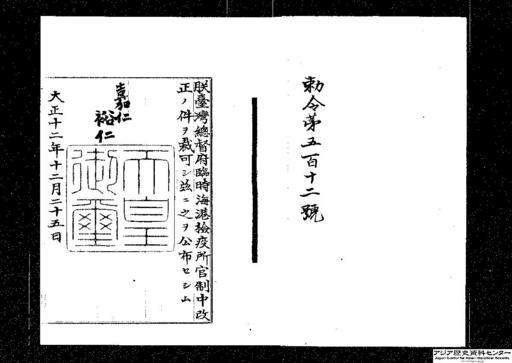 勅令第五百十二號
朕臺灣總督府臨時海港檢疫所官制中改
正ノ件ヲ裁可シ玆ニ之ヲ公布セシム
嘉仁
裕仁
天皇
御璽
大正十二年十二月二十五日
アジア歴史資料センター
Japan Center for Asian Historical Records